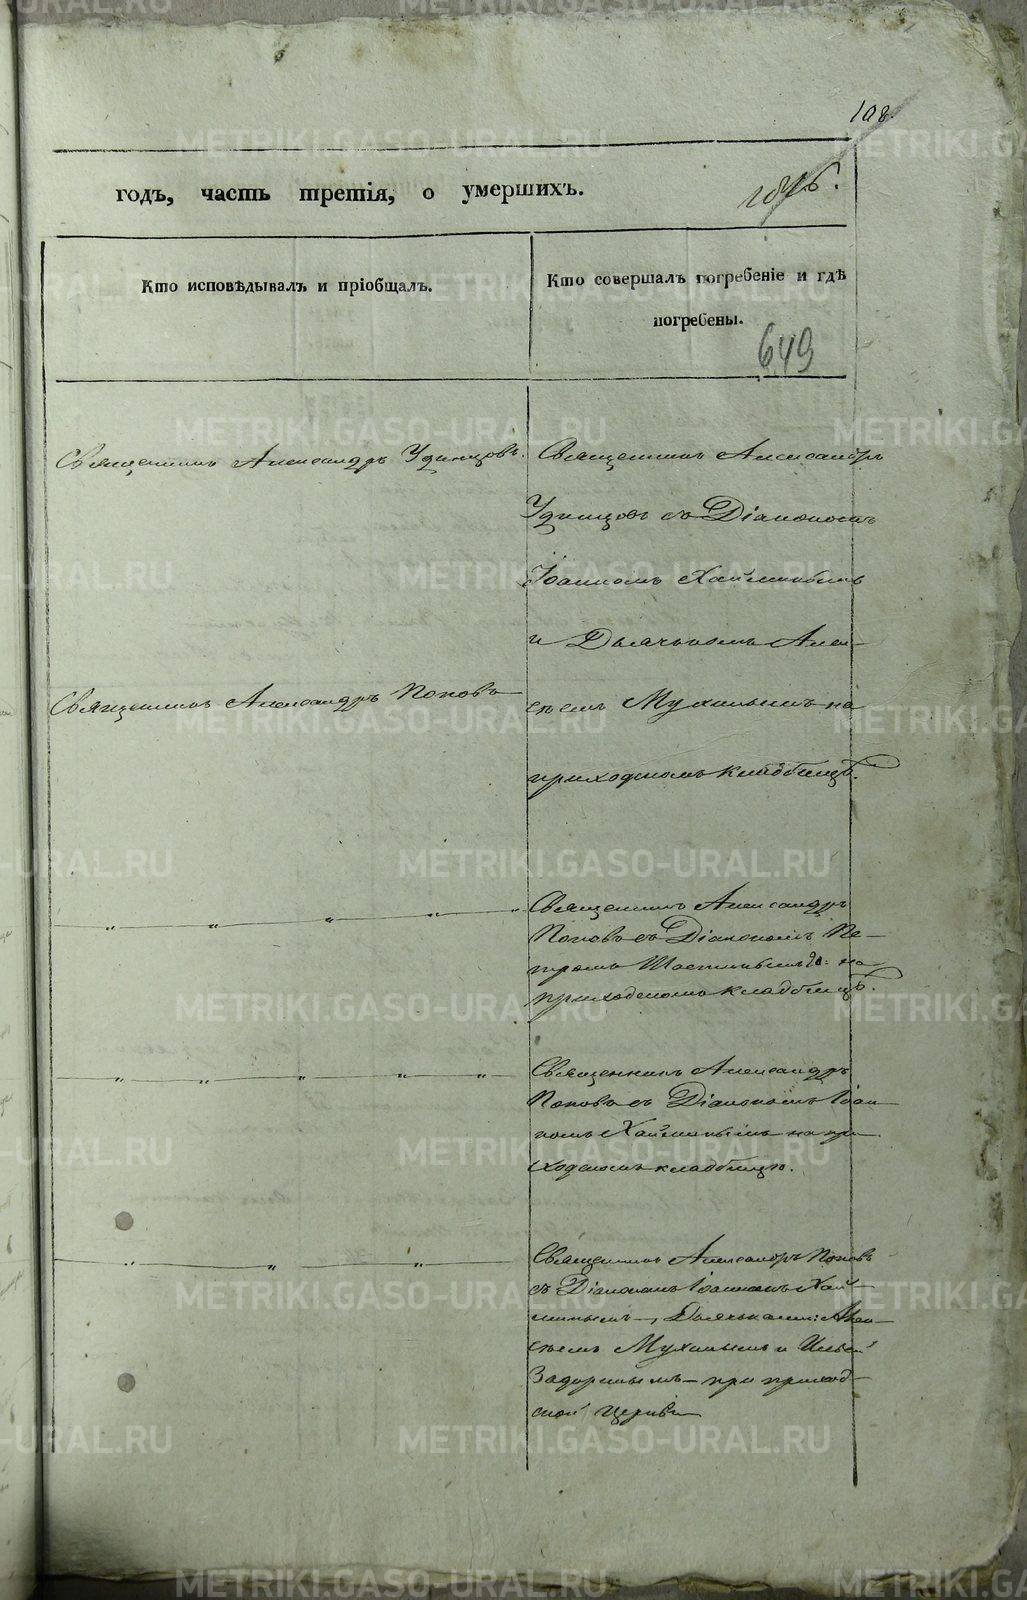 108.
годъ, часть третія, о умершихъ.
Кто исповѣдывалъ и пріобщалъ.
Кто совершалъ погребеніе и гдѣ
погребены.
649
Священникъ Александръ Удинцовъ.
Священникъ Александръ Поповъ
Священникъ Александръ
Удинцовъ съ Діакономъ
Іоанномъ Хайминымъ
и Дьячькомъ Алек-
сѣемъ Мухинымъ на
приходскомъ кладбищѣ.
Священникъ Александръ
Поповъ съ Діакономъ Пе-
тромъ на
приходскомъ кладбищѣ.
Священникъ Александръ
Поповъ съ Діакономъ Іоан-
номъ Хайминымъ на при-
ходскомъ кладбищѣ.
Священникъ Александръ Поповъ
съ Діакономъ Іоанномъ Хай-
минымъ, Дьячьками: Алек-
сѣемъ Мухинымъ и Ильей
Задоринымъ – при приход-
ской церкви
METRIKI.GASO-URAL.RU